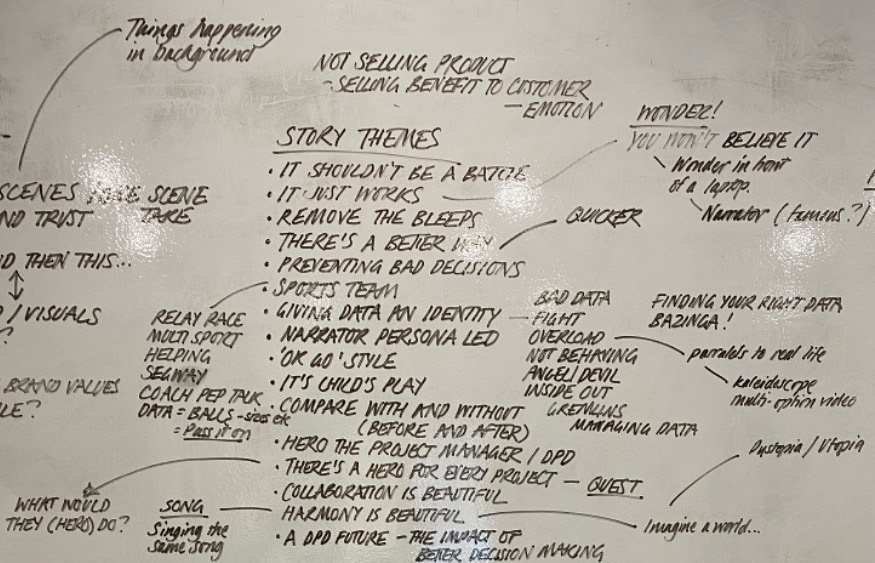 Things happening
in background
NOT SELLING PRODUCT
- SELLING BENEFIT TO CUSTOMER
- EMOTION
WONDER!
YOU WON'T BELIEVE IT
Wonder in front
of a laptop.
Narrator (famous?)
STORY THEMES
• IT SHOULDN'T BE A BATTLE
• IT JUST WORKS
• REMOVE THE BLEEPS
• THERE'S A BETTER WAY
QUICKER
• PREVENTING BAD DECISIONS
• SPORTS TEAM
• GIVING DATA AN IDENTITY
• NARRATOR PERSONA LED
• 'OK GO' STYLE
• IT'S CHILD'S PLAY
• COMPARE WITH AND WITHOUT
(BEFORE AND AFTER)
• HERO THE PROJECT MANAGER / DPD
• THERE'S A HERO FOR EVERY PROJECT - QUEST
• COLLABORATION IS BEAUTIFUL
HARMONY IS BEAUTIFUL
• A DPD FUTURE - THE IMPACT OF
BETTER DECISION MAKING
SCENES SCENE
ND TRUST TAKE
D THEN THIS...
/ VISUALS
?
BRAND VALUES
LE?
RELAY RACE
MULTI SPORT
HELPING
SEGWAY
COACH PEP TALK
DATA = BALLS - sizes etc
= Pass it on
BAD DATA
FIGHT
OVERLOAD
NOT BEHAVING
ANGEL/DEVIL
INSIDE OUT
GREMLINS
MANAGING DATA
FINDING YOUR RIGHT DATA
BAZINGA!
parralels to real life
kaleidoscope
multi-option video
WHAT WOULD
THEY (HERO) DO?
SONG
Singing the
same song
Dystopia / Utopia
Imagine a world...